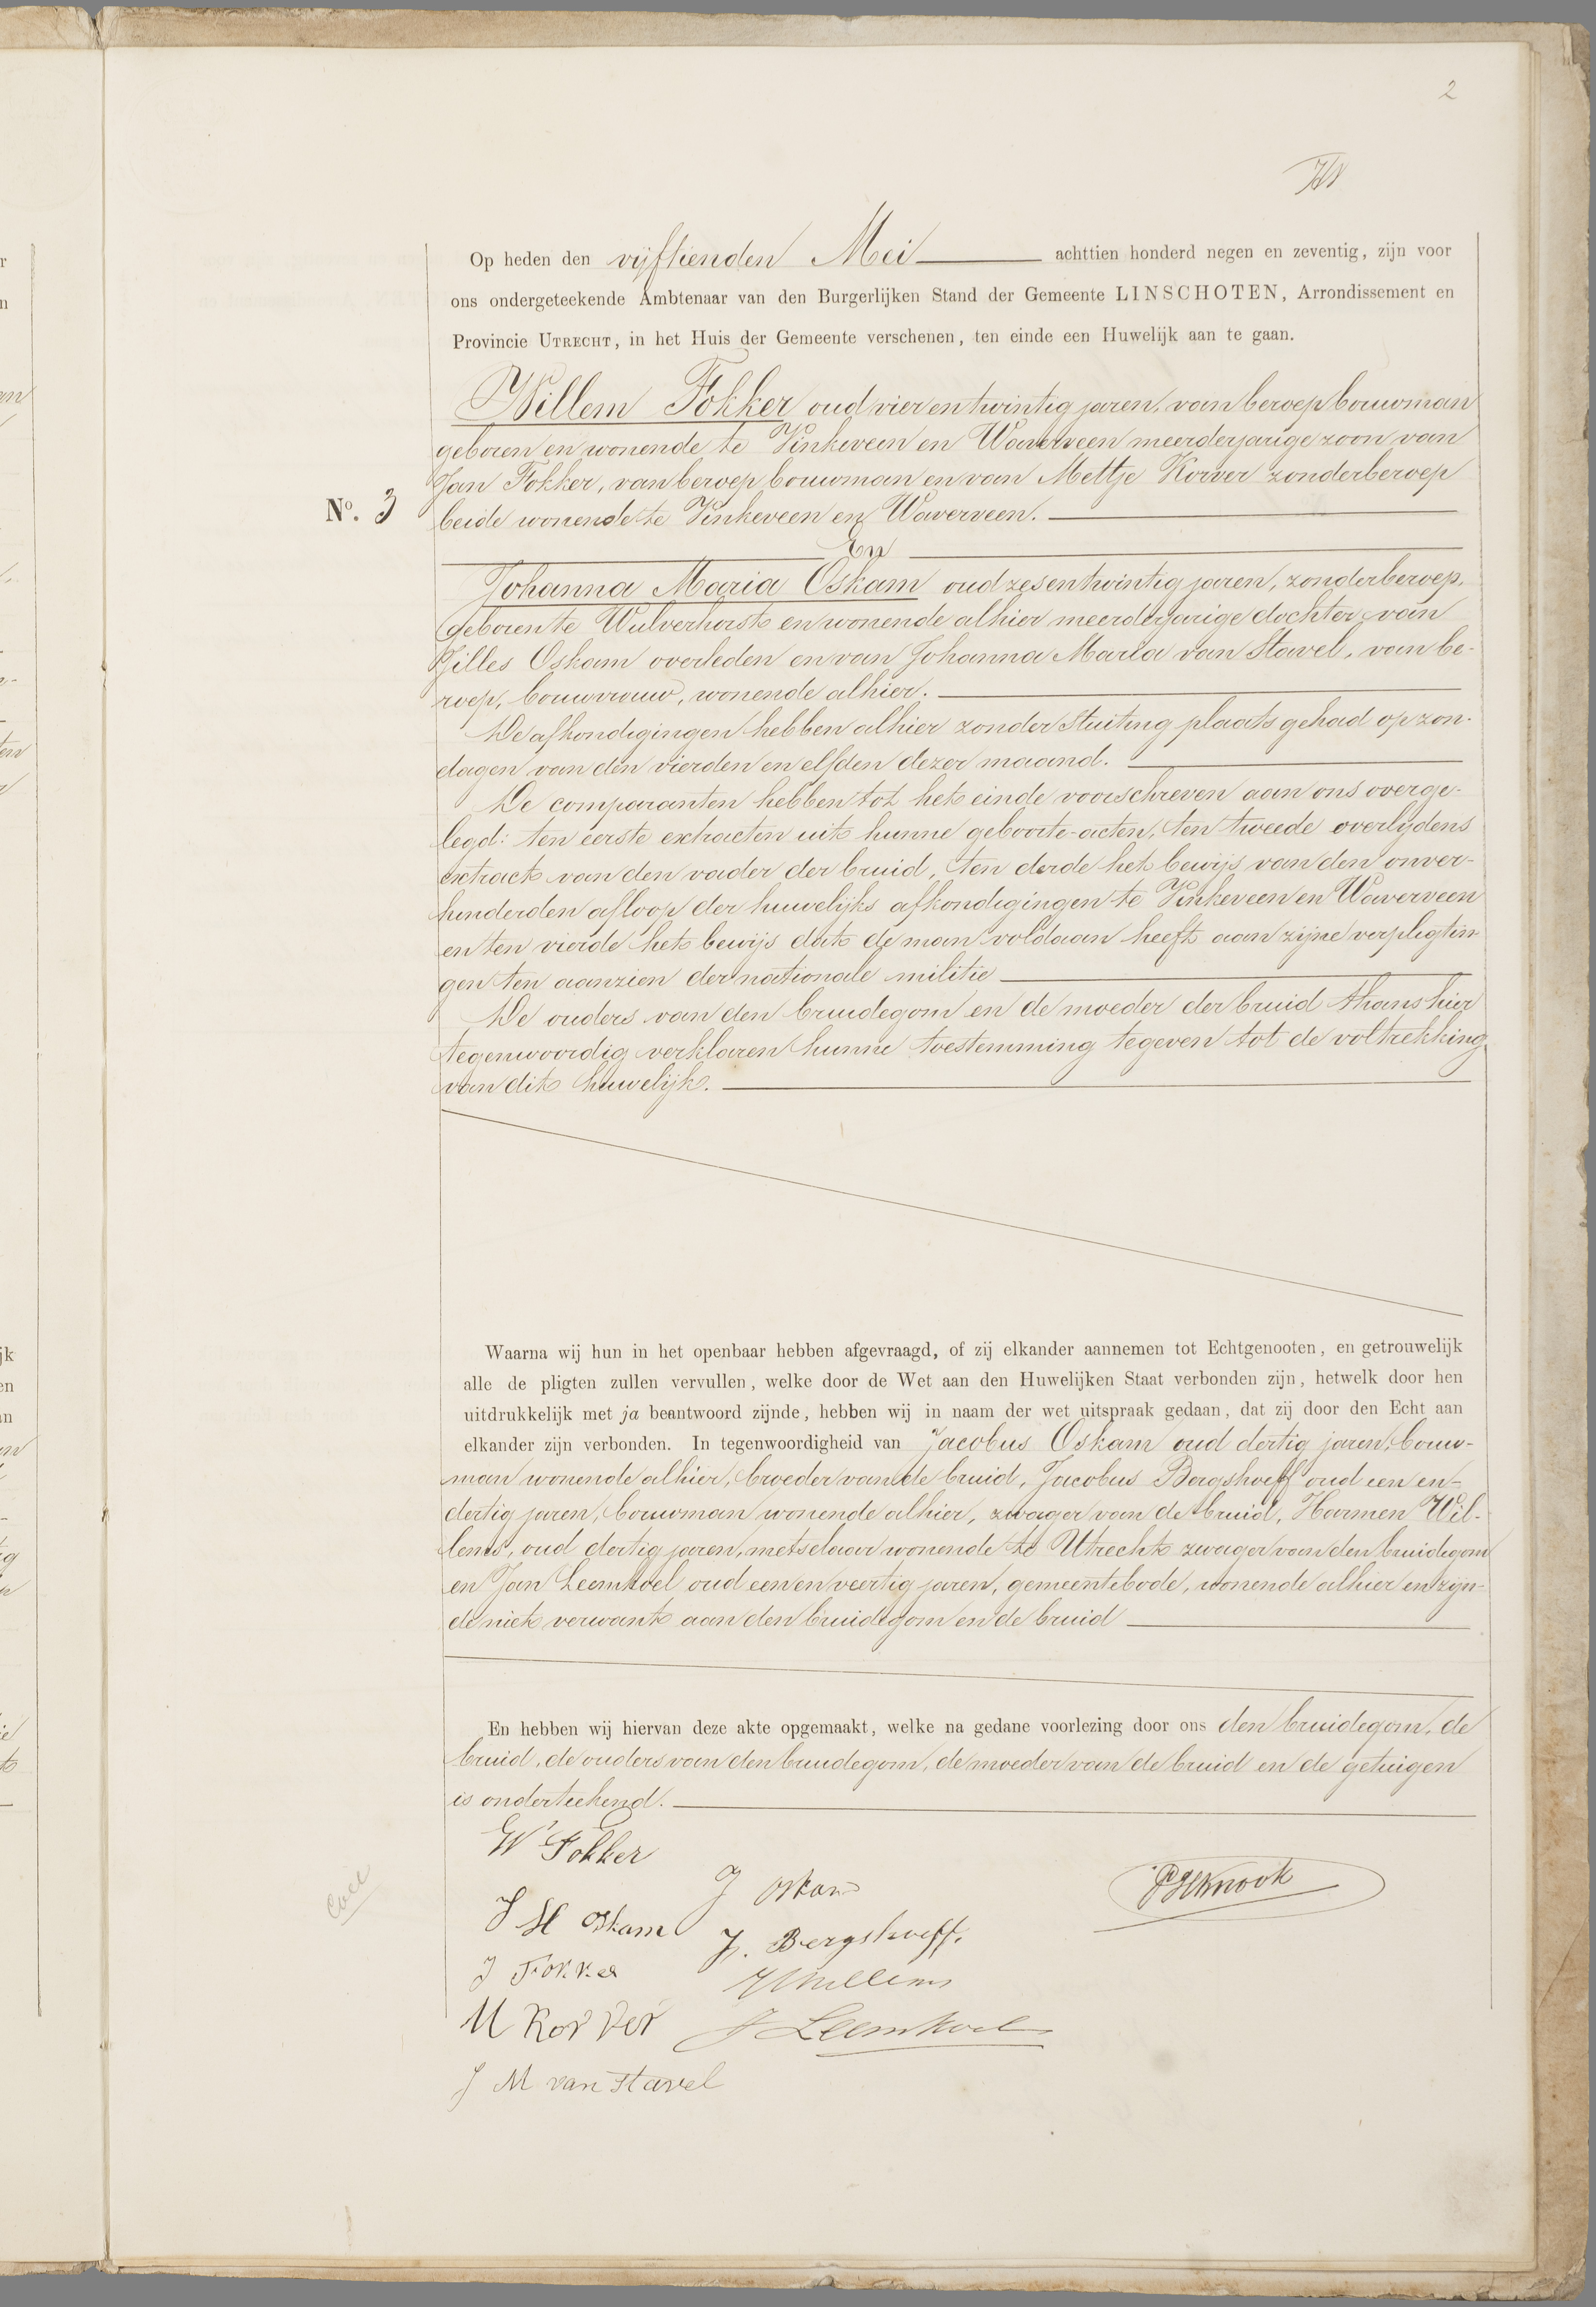 2
Op heden den vijftienden Mei achttien honderd negen en zeventig, zijn voor
ons ondergeteekende Ambtenaar van den Burgerlijken Stand der Gemeente LINSCHOTEN, Arrondissement en
Provincie UTRECHT, in het Huis der Gemeente verschenen, ten einde een Huwelijk aan te gaan.
Willem Fokker oud vier en twintig jaren, van beroep bouwman
geboren en wonende te Vinkeveen en Waverveen meerderjarige zoon van
Jan Fokker, van beroep bouwman en van Mettje Korver zonder beroep
No. 3
beide wonende te Vinkeveen en Waverveen.
En
Johanna Maria Oskam oud zes en twintig jaren, zonder beroep,
geboren te Wulverhorst en wonende alhier meerderjarige dochter van
Gilles Oskam overleden en van Johanna Maria van Stavel, van be-
roep, bouwvrouw, wonende alhier.
De afkondigingen hebben alhier zonder stuiting plaats gehad op zon-
dagen van den vierden en elfden dezer maand.
De comparanten hebben tot het einde voorschreven aan ons overge-
legd: ten eerste extracten uit hunne geboorte-acten, ten tweede overlijdens
extract van den vader der bruid, ten derde het bewijs van den onver-
hinderden afloop der huwelijks afkondigingen te Vinkeveen en Waverveen
en ten vierde het bewijs dat de man voldaan heeft aan zijne verpligtin-
gen ten aanzien der nationale militie
De ouders van den bruidegom en de moeder der bruid thans hier
tegenwoordig verklaren hunne toestemming te geven tot de voltrekking
van dit huwelijk.
Waarna wij hun in het openbaar hebben afgevraagd, of zij elkander aannemen tot Echtgenooten, en getrouwelijk
alle de pligten zullen vervullen, welke door de Wet aan den Huwelijken Staat verbonden zijn, hetwelk door hen
uitdrukkelijk met ja beantwoord zijnde, hebben wij in naam der wet uitspraak gedaan, dat zij door den Echt aan
elkander zijn verbonden. In tegenwoordigheid van Jacobus Oskam oud dertig jaren, bouw-
man wonende alhier, broeder van de bruid, Jacobus Bergshoeff oud een en-
dertig jaren, bouwman wonende alhier, zwager van de bruid, Harmen Wil-
lems, oud dertig jaren, metselaar wonende te Utrecht zwager van den bruidegom
en Jan Leemkoel oud een en veertig jaren, gemeentebode, wonende alhier en zijn-
de niet verwant aan den bruidegom en de bruid
En hebben wij hiervan deze akte opgemaakt, welke na gedane voorlezing door ons den bruidegom, de
bruid, de ouders van den bruidegom, de moeder van de bruid en de getuigen
is onderteekend.
W Fokker
J M Oskam
J Fokker
M Korver
J M van Stavel
J Oskam
J. Bergshoeff.
HWillems
J Leemkoel